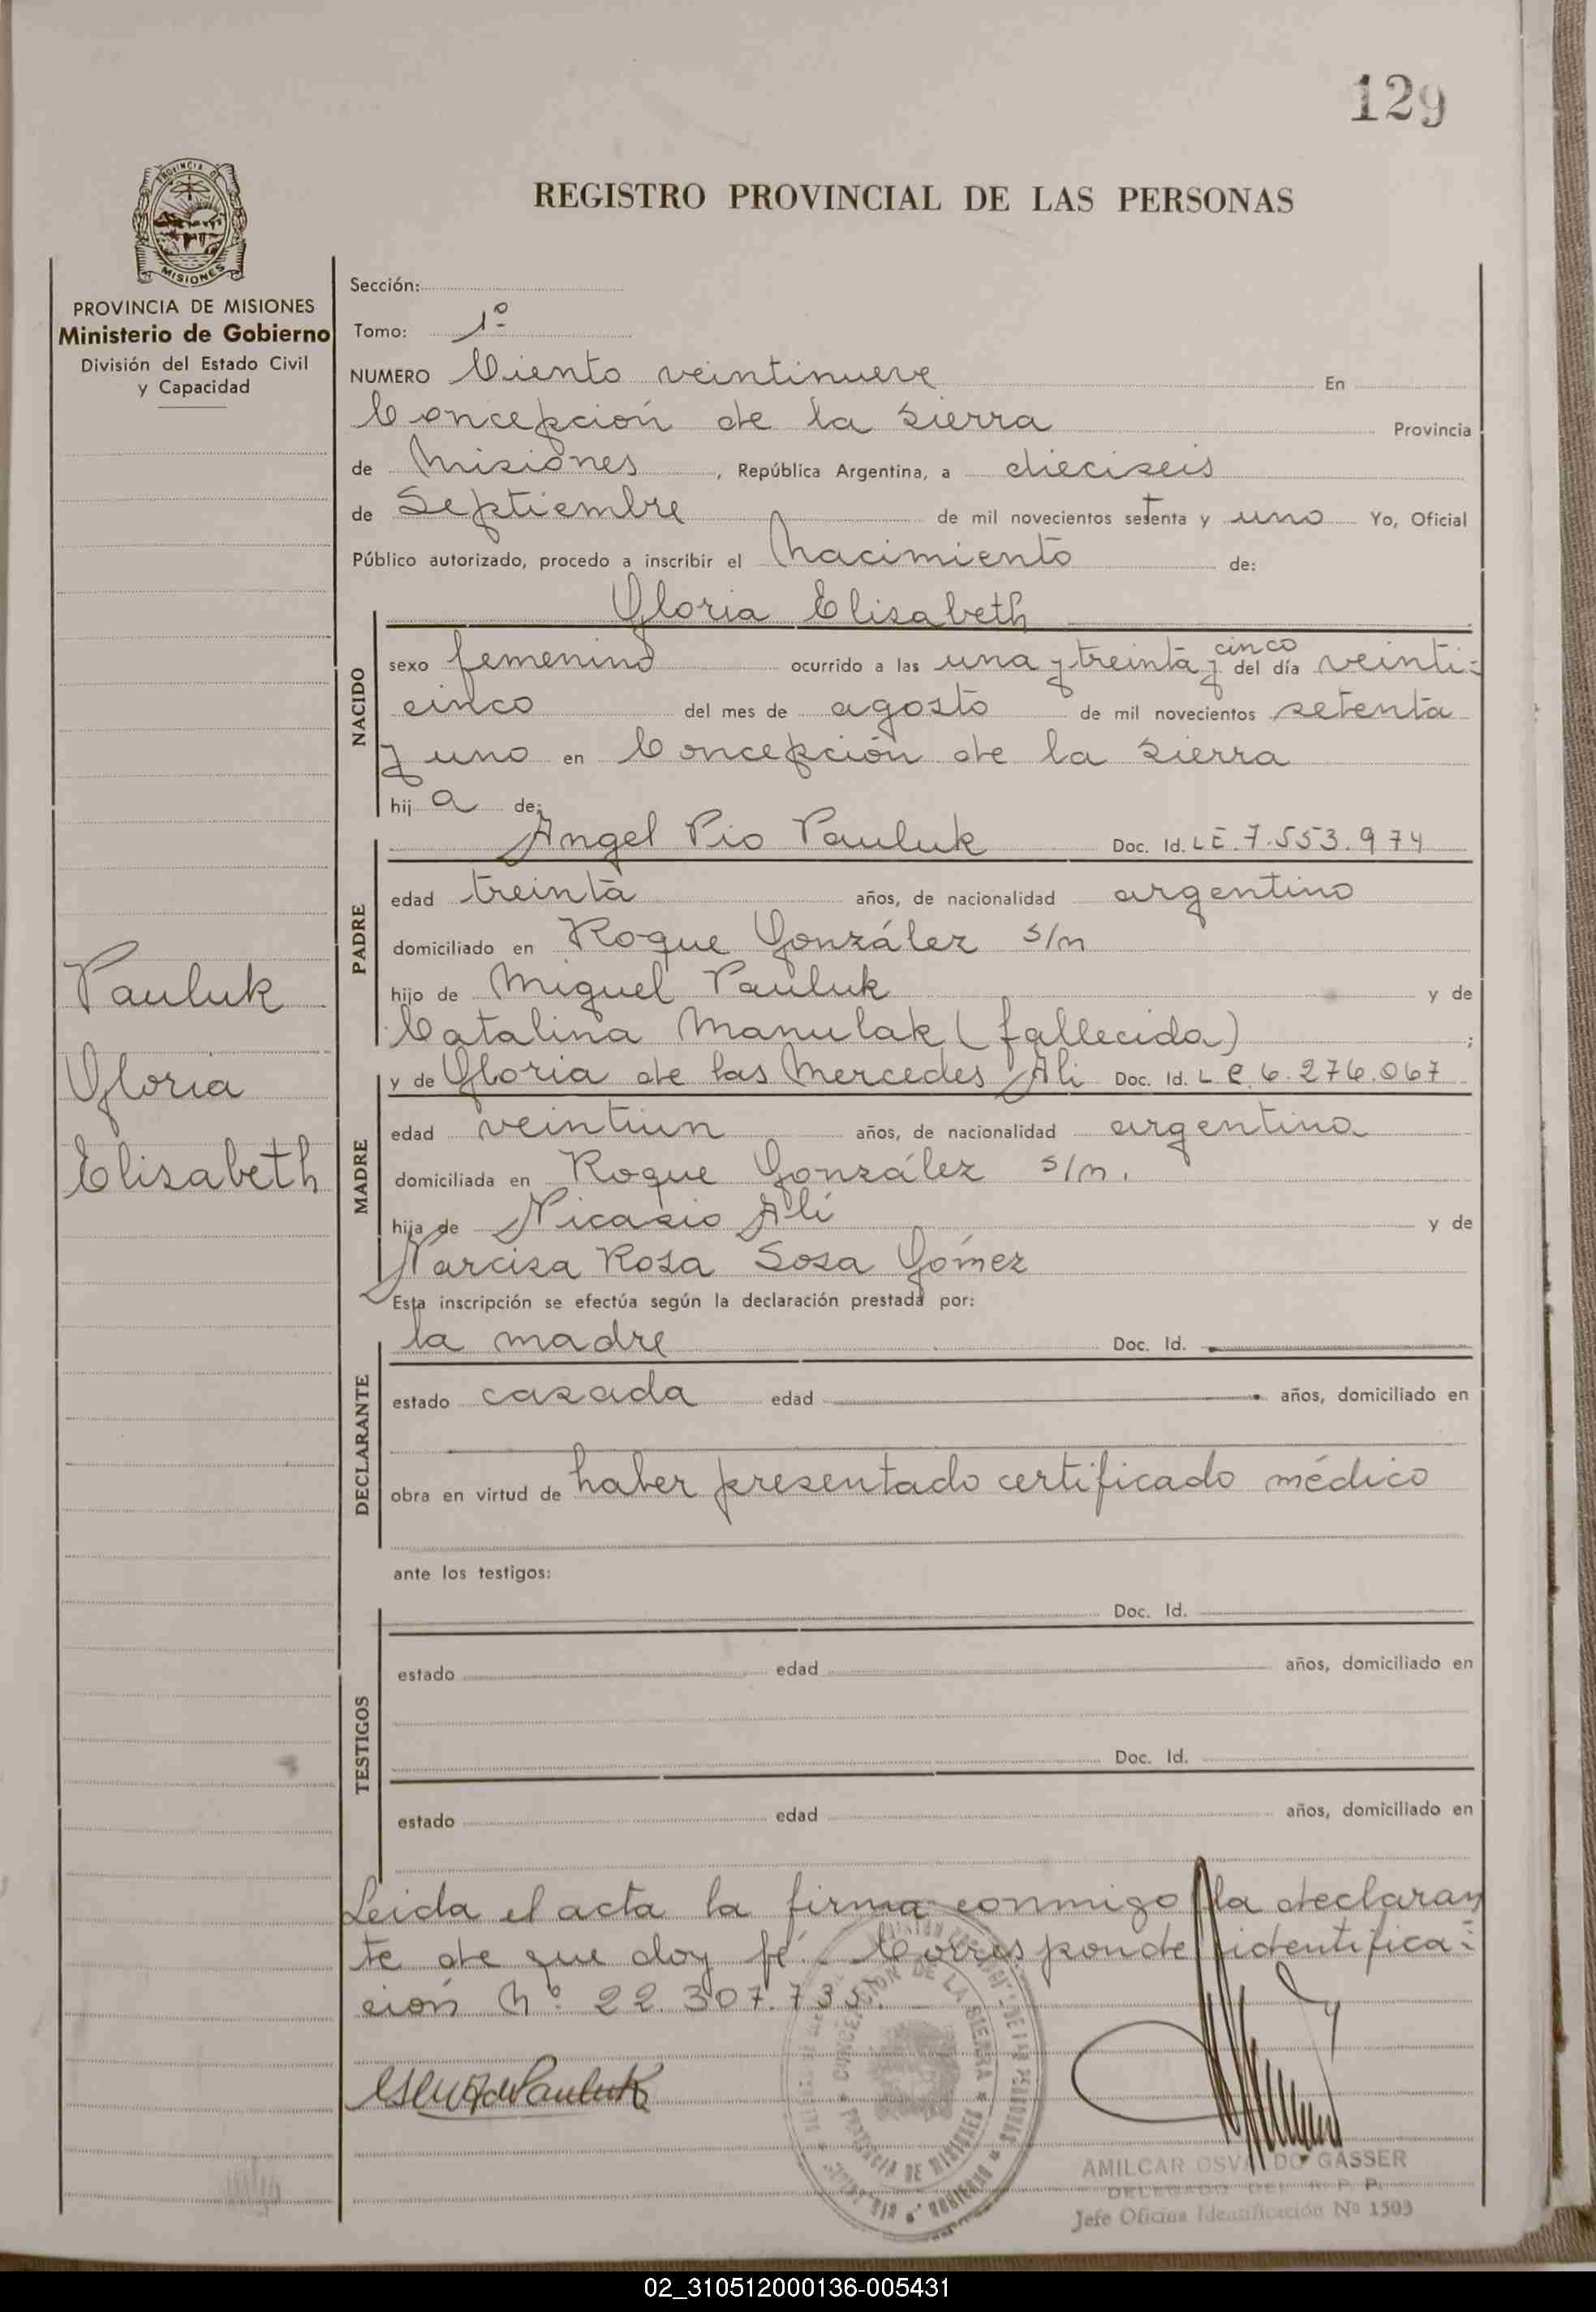 129
PROVINCIA DE
MISIONES
PROVINCIA DE MISIONES
Ministerio de Gobierno
División del Estado Civil
y Capacidad
Pauluk
Gloria
Elisabeth
REGISTRO PROVINCIAL DE LAS PERSONAS
Sección:
Tomo: 1º
NUMERO Ciento veintinueve En
Concepción de la Sierra Provincia
de Misiones, República Argentina, a dieciseis
de Septiembre de mil novecientos setenta y uno Yo, Oficial
Público autorizado, procedo a inscribir el Nacimiento de:
Gloria Elisabeth
NACIDO
sexo femenino ocurrido a las una y treinta y cinco del día veinti-
cinco del mes de agosto de mil novecientos setenta
y uno en Concepción de la Sierra
hij a de:
PADRE
Angel Pio Pauluk Doc. Id. LE. 7.553.974
edad treinta años, de nacionalidad argentino
domiciliado en Roque González s/n
hijo de Miguel Pauluk y de
Catalina Manulak (fallecida) ;
MADRE
y de Gloria de las Mercedes Ali Doc. Id. L C. 6.276.067
edad veintiun años, de nacionalidad argentina
domiciliada en Roque González s/n.
hija de Nicasio Alí y de
Narcisa Rosa Sosa Gómez
Esta inscripción se efectúa según la declaración prestada por:
DECLARANTE
la madre Doc. Id.
estado casada edad años, domiciliado en
obra en virtud de haber presentado certificado médico
ante los testigos:
TESTIGOS
Doc. Id.
estado edad años, domiciliado en
Doc. Id.
estado edad años, domiciliado en
Leida el acta la firma conmigo la declaran
te de que doy fé. Corresponde identifica-
ción Nº 22.307.735.
CONCEPCION DE LA SIERRA
PROVINCIA DE MISIONES
AMILCAR OSVALDO GASSER
DELEGADO DEL R. P. P.
Jefe Oficina Identificación Nº 1503
02_310512000136-005431